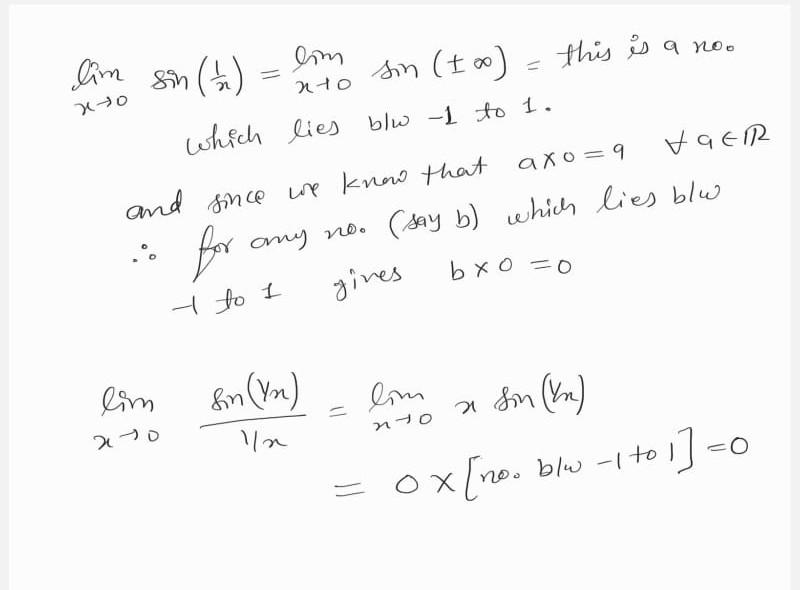 lim x→0 sin(1/x) = lim x→0 sin(±∞) = this is a no.
which lies b/w -1 to 1.
and since we know that a×0=9 ∀ 9∈ℝ
∴ for any no. (say b) which lies b/w
-1 to 1 gives b×0=0
lim x→0 sin(1/x) / 1/x = lim x→0 x sin(1/x)
= 0×[no. b/w -1 to 1]=0